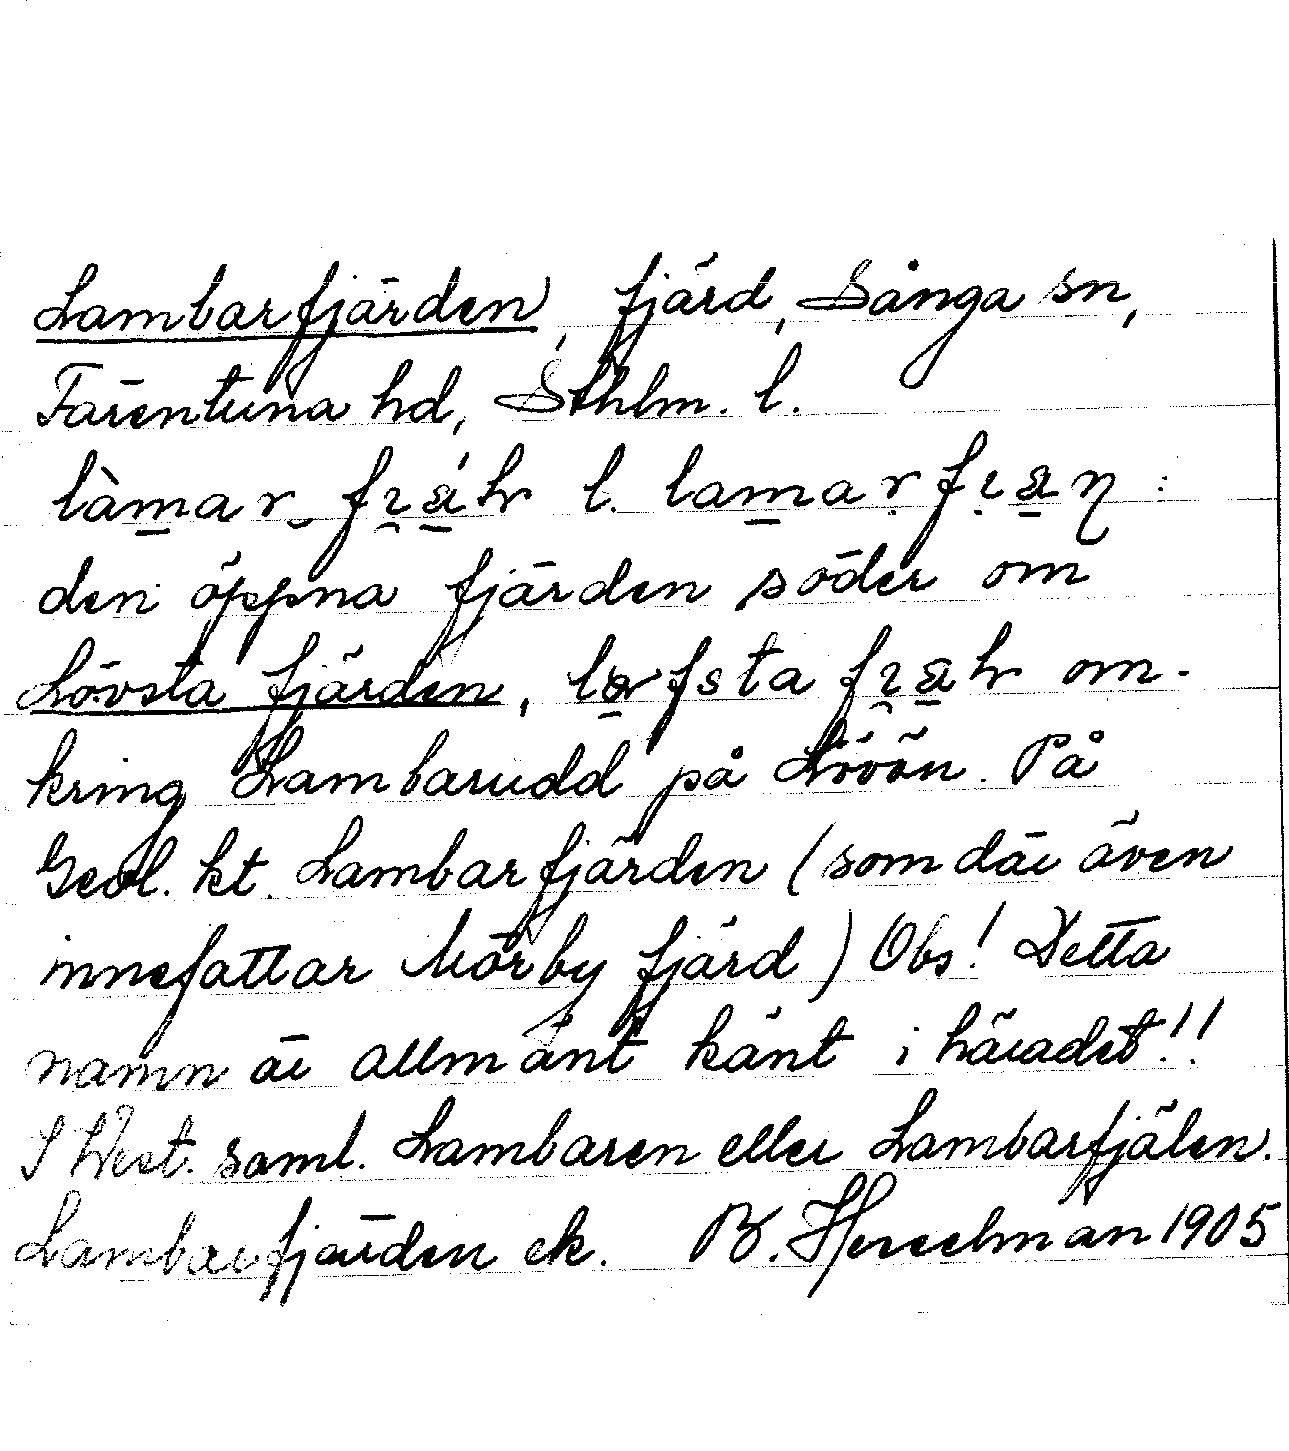 Lambarfjärden, fjärd, Sånga sn,
Färentuna hd, Sthlm. l.
l. :
den öppna fjärden söder om
Lövsta fjärden, om-
kring Lambarudd på Lövön. På
Geol. kt. Lambarfjärden (som där även
innefattar Mörby fjärd) Obs! Detta
namn är allmänt känt i häradet!!
I West. saml. Lambaren eller Lambarfjälen.
Lambarfjärden ek. B. Hesselman 1905